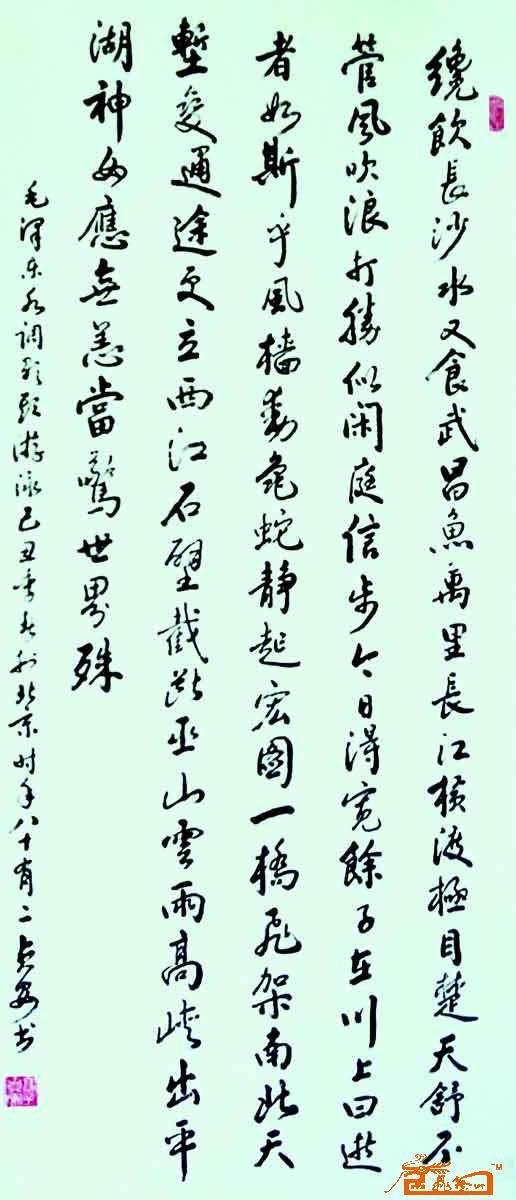 纔飲長沙水又食武昌魚萬里長江橫渡極目楚天舒不
管風吹浪打勝似閑庭信步今日得寬餘子在川上曰逝
者如斯乎風檣動龜蛇静起宏圖一橋飛架南北天
塹變通途更立西江石壁截斷巫山雲雨高峽出平
湖神女應無恙當驚世界殊
毛泽东水调歌頭游泳己丑季春於北京时年八十有二书